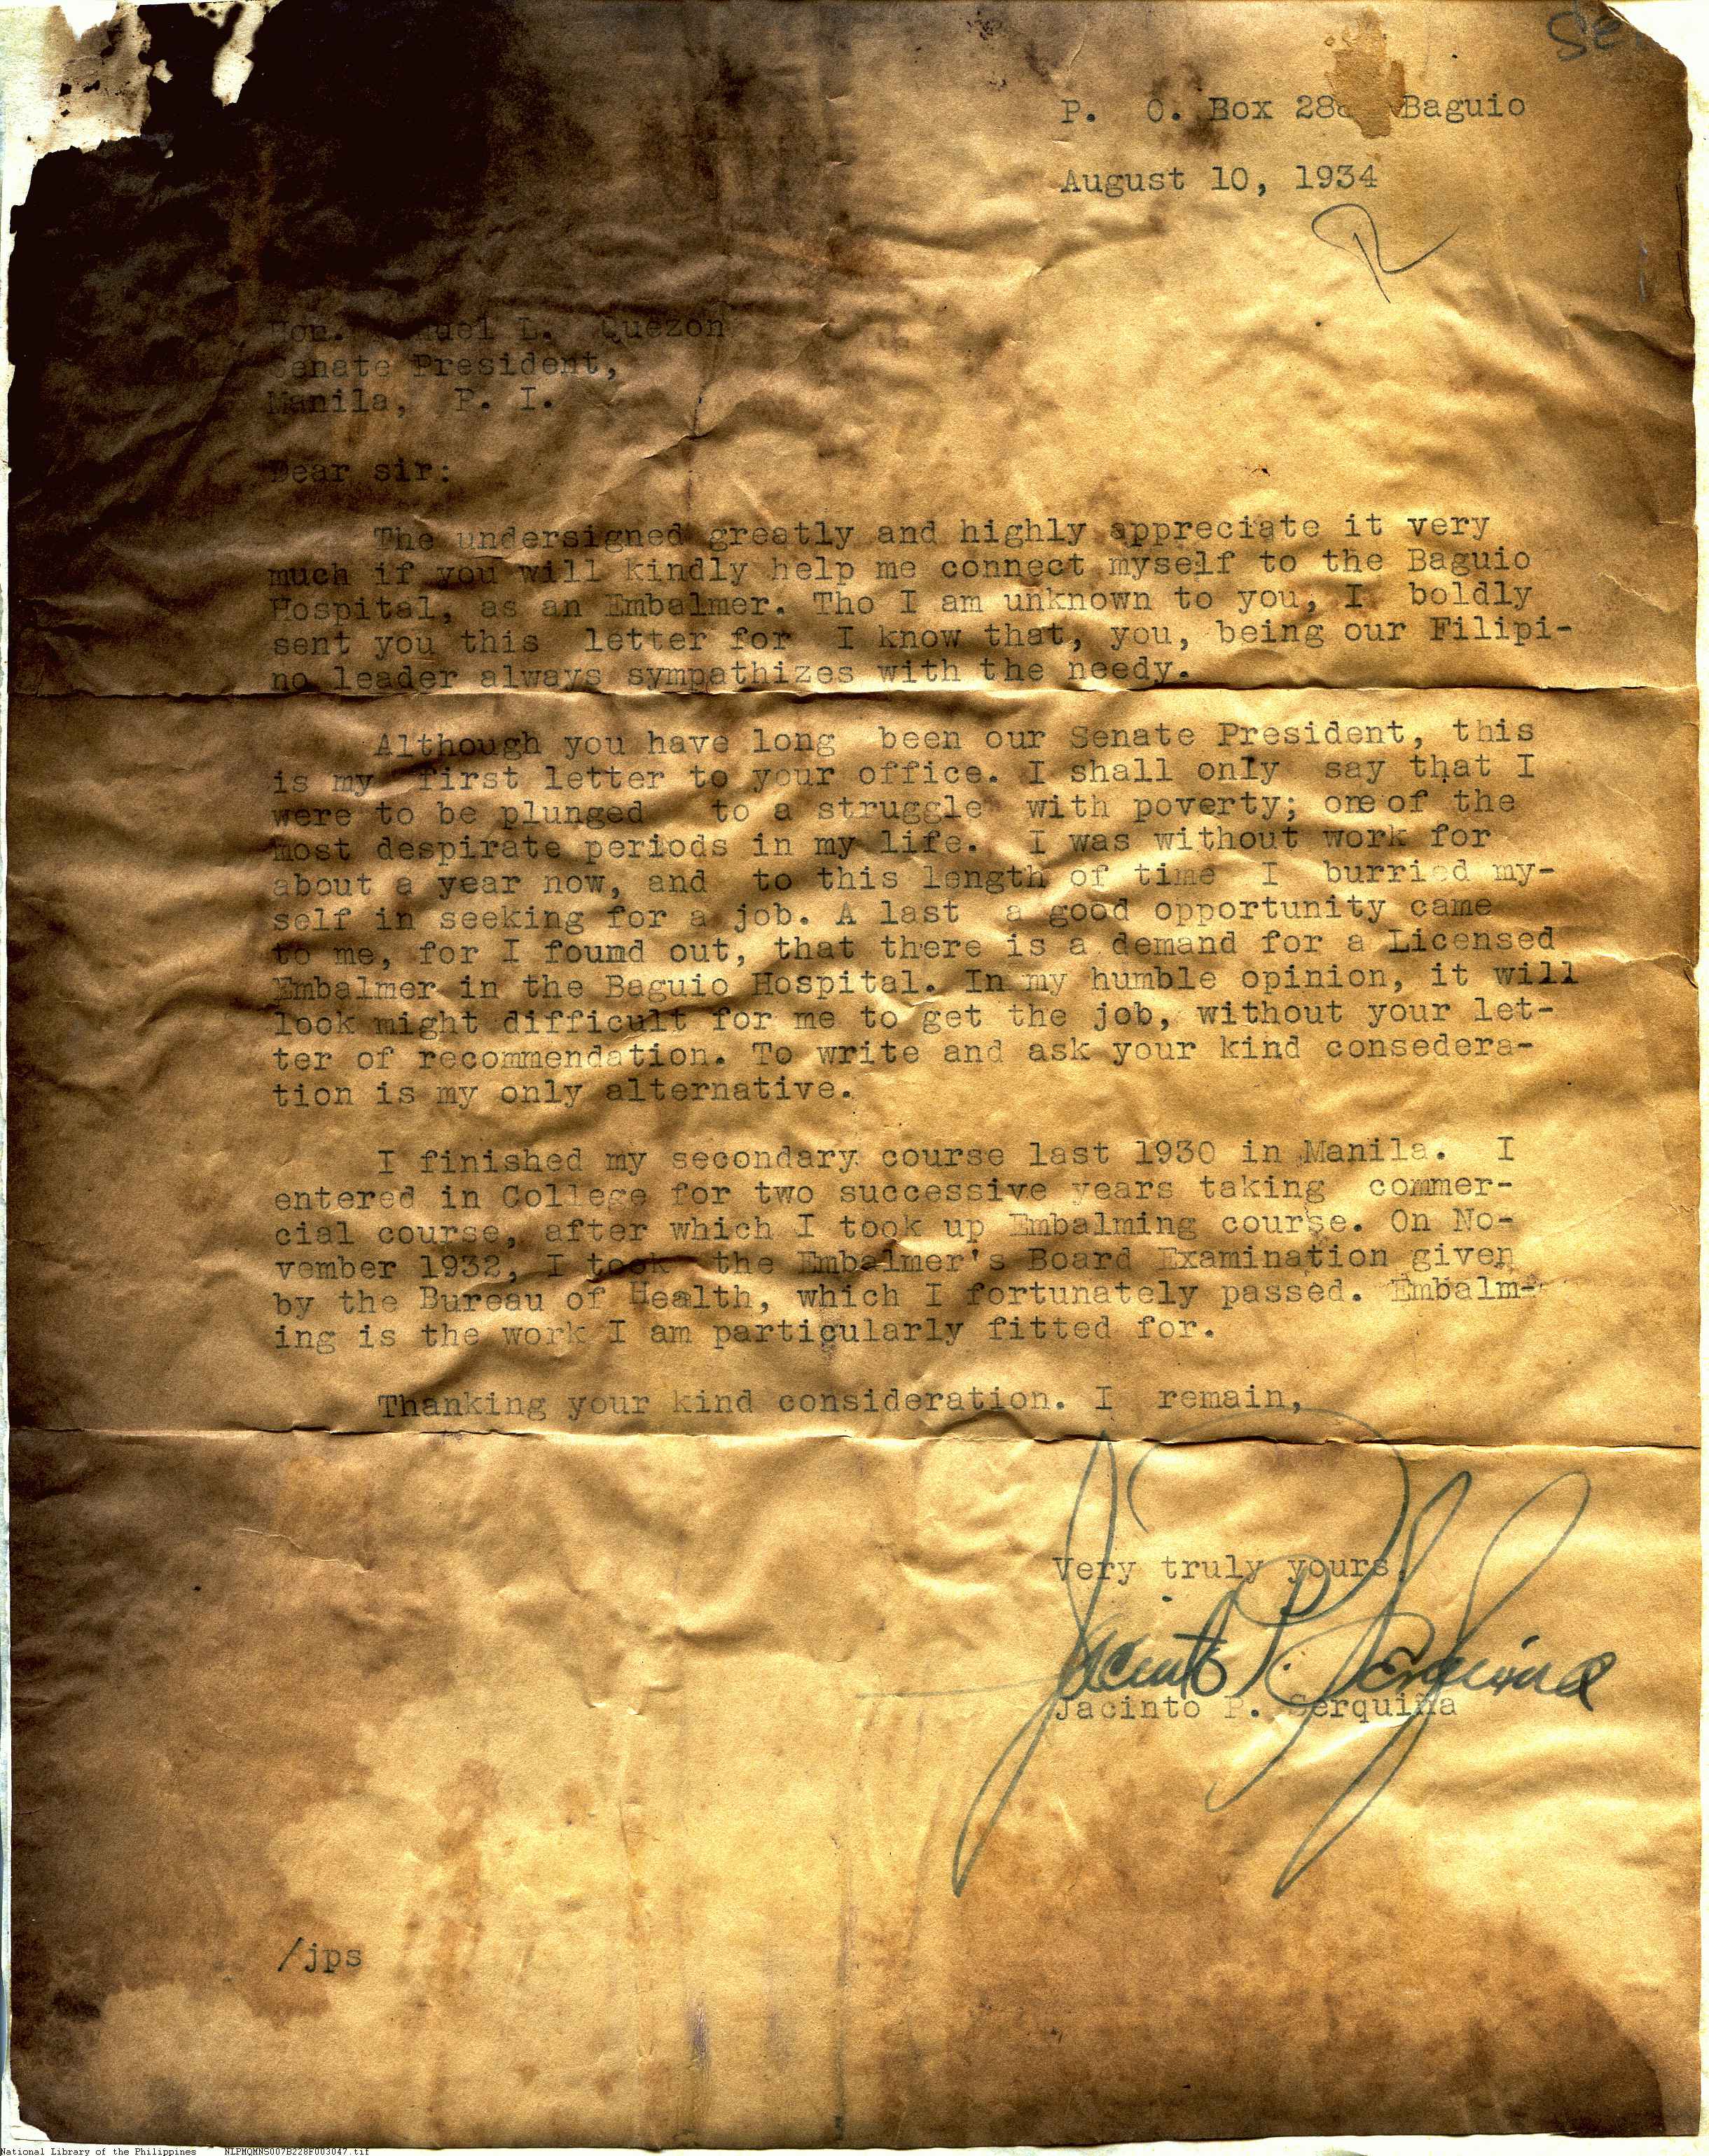 P. O. Box 28 Baguio
August 10, 1934
Hon. L. Quezon
Senate President,
Manila, P. I.
Dear sir:
The undersigned greatly and highly appreciate it very
much if you will kindly help me connect myself to the Baguio
Hospital, as an Embalmer. Tho I am unknown to you, I boldly
sent you this letter for I know that, you, being our Filipi-
no leader always sympathizes with the needy.
Although you have long been our Senate President, this
is my first letter to your office. I shall only say that I
were to be plunged to a struggle with poverty; one of the
most despirate periods in my life. I was without work for
about a year now, and to this length of time I burried my-
self in seeking for a job. A last a good opportunity came
to me, for I found out, that there is a demand for a Licensed
Embalmer in the Baguio Hospital. In my humble opinion, it will
look might difficult for me to get the job, without your let-
ter of recommendation. To write and ask your kind consedera-
tion is my only alternative.
I finished my secondary course last 1930 in Manila. I
entered in College for two successive years taking commer-
cial course, after which I took up Embalming course. On No-
vember 1932, I took the Embalmer's Board Examination given
by the Bureau of Health, which I fortunately passed. Embalm-
ing is the work I am particularly fitted for.
Thanking your kind consideration. I remain,
Very truly yours,
Jacinto P. Serquiña
Jacinto P. Serquiña
/jps
National Library of the Philippines NLPMQMNS007B228F003047.tif